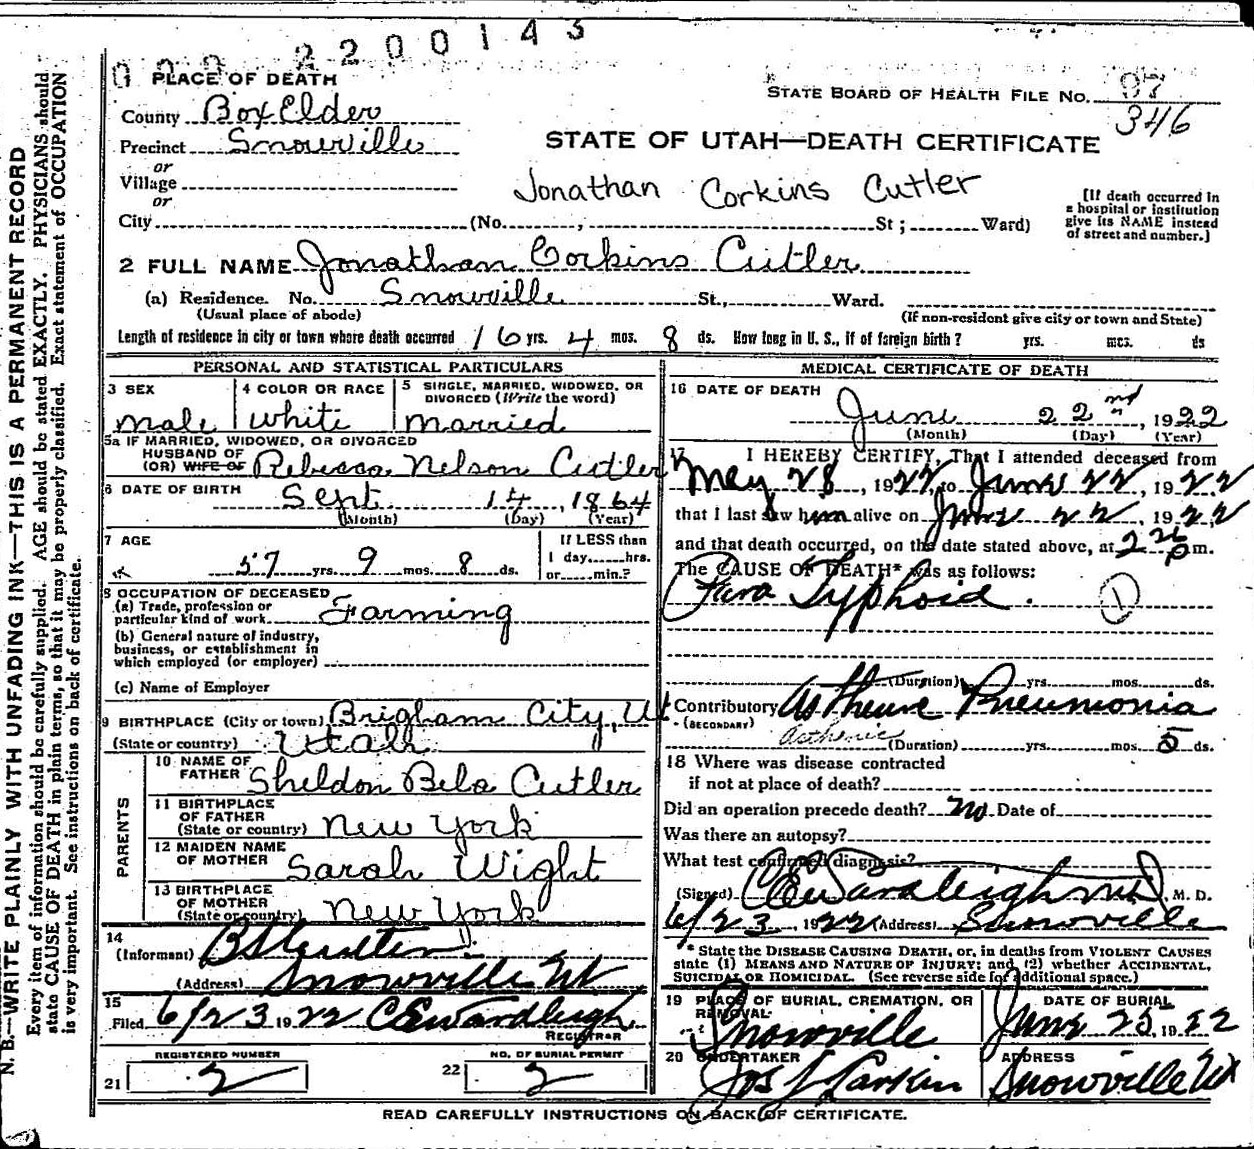 000 2200143
PLACE OF DEATH
County Box Elder
Precinct Snowville
or
Village
or
City (No. , St ; Ward)
STATE BOARD OF HEALTH FILE NO. 97
346
STATE OF UTAH—DEATH CERTIFICATE
Jonathan Corkins Cutler
[If death occurred in
a hospital or institution
give its NAME instead
of street and number.]
2 FULL NAME Jonathan Corkins Cutler
(a) Residence. No. Snowville St., Ward.
(Usual place of abode) (If non-resident give city or town and State)
Length of residence in city or town where death occurred 16 yrs. 4 mos. 8 ds. How long in U. S., if of foreign birth? yrs. mos. ds
PERSONAL AND STATISTICAL PARTICULARS
3 SEX
male
4 COLOR OR RACE
white
5 SINGLE, MARRIED, WIDOWED, OR
DIVORCED (Write the word)
married
5a IF MARRIED, WIDOWED, OR DIVORCED
HUSBAND OF
(OR) WIFE OF Rebecca Nelson Cutler
6 DATE OF BIRTH Sept 14, 1864
(Month) (Day) (Year)
7 AGE
57 yrs. 9 mos. 8 ds.
If LESS than
1 day, hrs.
or min.?
8 OCCUPATION OF DECEASED
(a) Trade, profession or
particular kind of work Farming
(b) General nature of industry,
business, or establishment in
which employed (or employer)
(c) Name of Employer
9 BIRTHPLACE (City or town) Brigham City, Ut
(State or country) Utah
PARENTS
10 NAME OF
FATHER Sheldon Bela Cutler
11 BIRTHPLACE
OF FATHER
(State or country) New York
12 MAIDEN NAME
OF MOTHER Sarah Wight
13 BIRTHPLACE
OF MOTHER
(State or country) New York
14
(Informant)
(Address) Snowville Ut
15
Filed 6/23 1922 C E Wardleigh
REGISTRAR
REGISTERED NUMBER
21 2
NO. OF BURIAL PERMIT
22 2
MEDICAL CERTIFICATE OF DEATH
16 DATE OF DEATH
June 22nd, 1922
(Month) (Day) (Year)
17 I HEREBY CERTIFY, That I attended deceased from
May 28, 1922, to June 22, 1922
that I last saw him alive on June 22, 1922
and that death occurred, on the date stated above, at 2 20 p m.
The CAUSE OF DEATH* was as follows:
Para Typhoid. 1
(Duration) yrs. mos. ds.
Contributory Asthenic Pneumonia
(SECONDARY) Asthenic
(Duration) yrs. mos. 5 ds.
18 Where was disease contracted
if not at place of death?
Did an operation precede death? No Date of
Was there an autopsy?
What test confirmed diagnosis?
(Signed) C E Wardleigh MD, M. D.
6/23, 1922 (Address) Snowville
* State the DISEASE CAUSING DEATH, or, in deaths from VIOLENT CAUSES
state (1) MEANS AND NATURE OF INJURY; and (2) whether ACCIDENTAL,
SUICIDAL OR HOMICIDAL. (See reverse side for additional space.)
19 PLACE OF BURIAL, CREMATION, OR
REMOVAL
Snowville
DATE OF BURIAL
June 25 1922
20 UNDERTAKER
Jos J Larkin
ADDRESS
Snowville Ut
READ CAREFULLY INSTRUCTIONS ON BACK OF CERTIFICATE.
N. B.—WRITE PLAINLY WITH UNFADING INK—THIS IS A PERMANENT RECORD
Every item of information should be carefully supplied. AGE should be stated EXACTLY. PHYSICIANS should
state CAUSE OF DEATH in plain terms, so that it may be properly classified. Exact statement of OCCUPATION
is very important. See instructions on back of certificate.